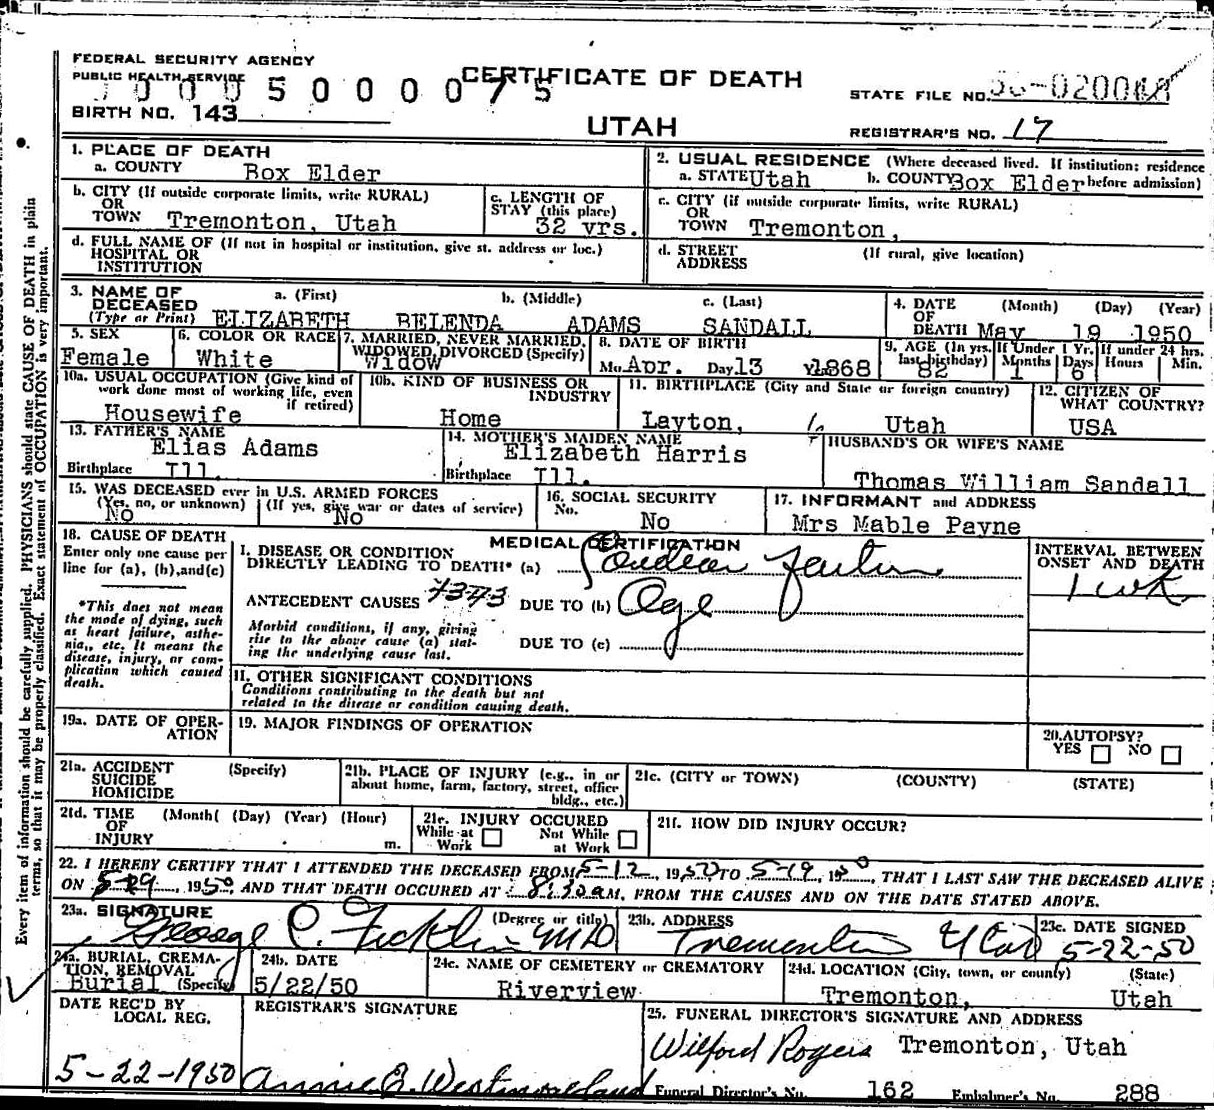 FEDERAL SECURITY AGENCY
PUBLIC HEALTH SERVICE
CERTIFICATE OF DEATH
0005000075
STATE FILE NO.
BIRTH NO. 143
UTAH
REGISTRAR'S NO. 17
1. PLACE OF DEATH
a. COUNTY Box Elder
2. USUAL RESIDENCE (Where deceased lived. If institution: residence before admission)
a. STATE Utah b. COUNTY Box Elder
b. CITY (If outside corporate limits, write RURAL)
OR
TOWN Tremonton, Utah
c. LENGTH OF
STAY (this place)
32 yrs.
c. CITY (if outside corporate limits, write RURAL)
OR
TOWN Tremonton,
d. FULL NAME OF (If not in hospital or institution, give st. address or loc.)
HOSPITAL OR
INSTITUTION
d. STREET (If rural, give location)
ADDRESS
3. NAME OF
DECEASED
(Type or Print)
a. (First) b. (Middle) c. (Last)
ELIZABETH BELENDA ADAMS SANDALL
4. DATE (Month) (Day) (Year)
OF
DEATH May 19 1950
5. SEX
Female
6. COLOR OR RACE
White
7. MARRIED, NEVER MARRIED,
WIDOWED, DIVORCED (Specify)
Widow
8. DATE OF BIRTH
Mo. Apr. Day 13 1868
9. AGE (In yrs. last birthday) If Under 1 Yr. If under 24 hrs.
Months Days Hours Min.
82 1 6
10a. USUAL OCCUPATION (Give kind of
work done most of working life, even
if retired)
Housewife
10b. KIND OF BUSINESS OR
INDUSTRY
Home
11. BIRTHPLACE (City and State or foreign country)
Layton, Utah
12. CITIZEN OF
WHAT COUNTRY?
USA
13. FATHER'S NAME
Elias Adams
Birthplace Ill.
14. MOTHER'S MAIDEN NAME
Elizabeth Harris
Birthplace Ill.
HUSBAND'S OR WIFE'S NAME
Thomas William Sandall
15. WAS DECEASED ever in U.S. ARMED FORCES
(Yes, no, or unknown) (If yes, give war or dates of service)
No No
16. SOCIAL SECURITY
No.
No
17. INFORMANT and ADDRESS
Mrs Mable Payne
18. CAUSE OF DEATH
Enter only one cause per
line for (a), (b), and (c)
*This does not mean
the mode of dying, such
as heart failure, asthe-
nia, etc. It means the
disease, injury, or com-
plication which caused
death.
MEDICAL CERTIFICATION
I. DISEASE OR CONDITION
DIRECTLY LEADING TO DEATH* (a)
ANTECEDENT CAUSES DUE TO (b) Age
Morbid conditions, if any, giving
rise to the above cause (a) stat-
ing the underlying cause last.
DUE TO (c)
INTERVAL BETWEEN
ONSET AND DEATH
1 wk
II. OTHER SIGNIFICANT CONDITIONS
Conditions contributing to the death but not
related to the disease or condition causing death.
19a. DATE OF OPER-
ATION
19. MAJOR FINDINGS OF OPERATION
20. AUTOPSY?
YES NO
21a. ACCIDENT (Specify)
SUICIDE
HOMICIDE
21b. PLACE OF INJURY (e.g., in or
about home, farm, factory, street, office
bldg., etc.)
21c. (CITY or TOWN) (COUNTY) (STATE)
21d. TIME (Month( (Day) (Year) (Hour)
OF
INJURY m.
21e. INJURY OCCURED
While at Work
Not While at Work
21f. HOW DID INJURY OCCUR?
22. I HEREBY CERTIFY THAT I ATTENDED THE DECEASED FROM 5-12, 1950 TO 5-19, 1950, THAT I LAST SAW THE DECEASED ALIVE
ON 1950, AND THAT DEATH OCCURED AT 8:30 am, FROM THE CAUSES AND ON THE DATE STATED ABOVE.
23a. SIGNATURE (Degree or title)
George C. Ficklin MD
23b. ADDRESS
Tremonton Utah
23c. DATE SIGNED
5-22-50
24a. BURIAL, CREMA-
TION, REMOVAL
(Specify)
Burial
24b. DATE
5/22/50
24c. NAME OF CEMETERY or CREMATORY
Riverview
24d. LOCATION (City, town, or county) (State)
Tremonton, Utah
DATE REC'D BY
LOCAL REG.
5-22-1950
REGISTRAR'S SIGNATURE
Annie E. Westmoreland
25. FUNERAL DIRECTOR'S SIGNATURE AND ADDRESS
Wilford Rogers Tremonton, Utah
Funeral Director's No. 162 Embalmer's No. 288
Every item of information should be carefully supplied. PHYSICIANS should state CAUSE OF DEATH in plain
terms, so that it may be properly classified. Exact statement of OCCUPATION is very important.